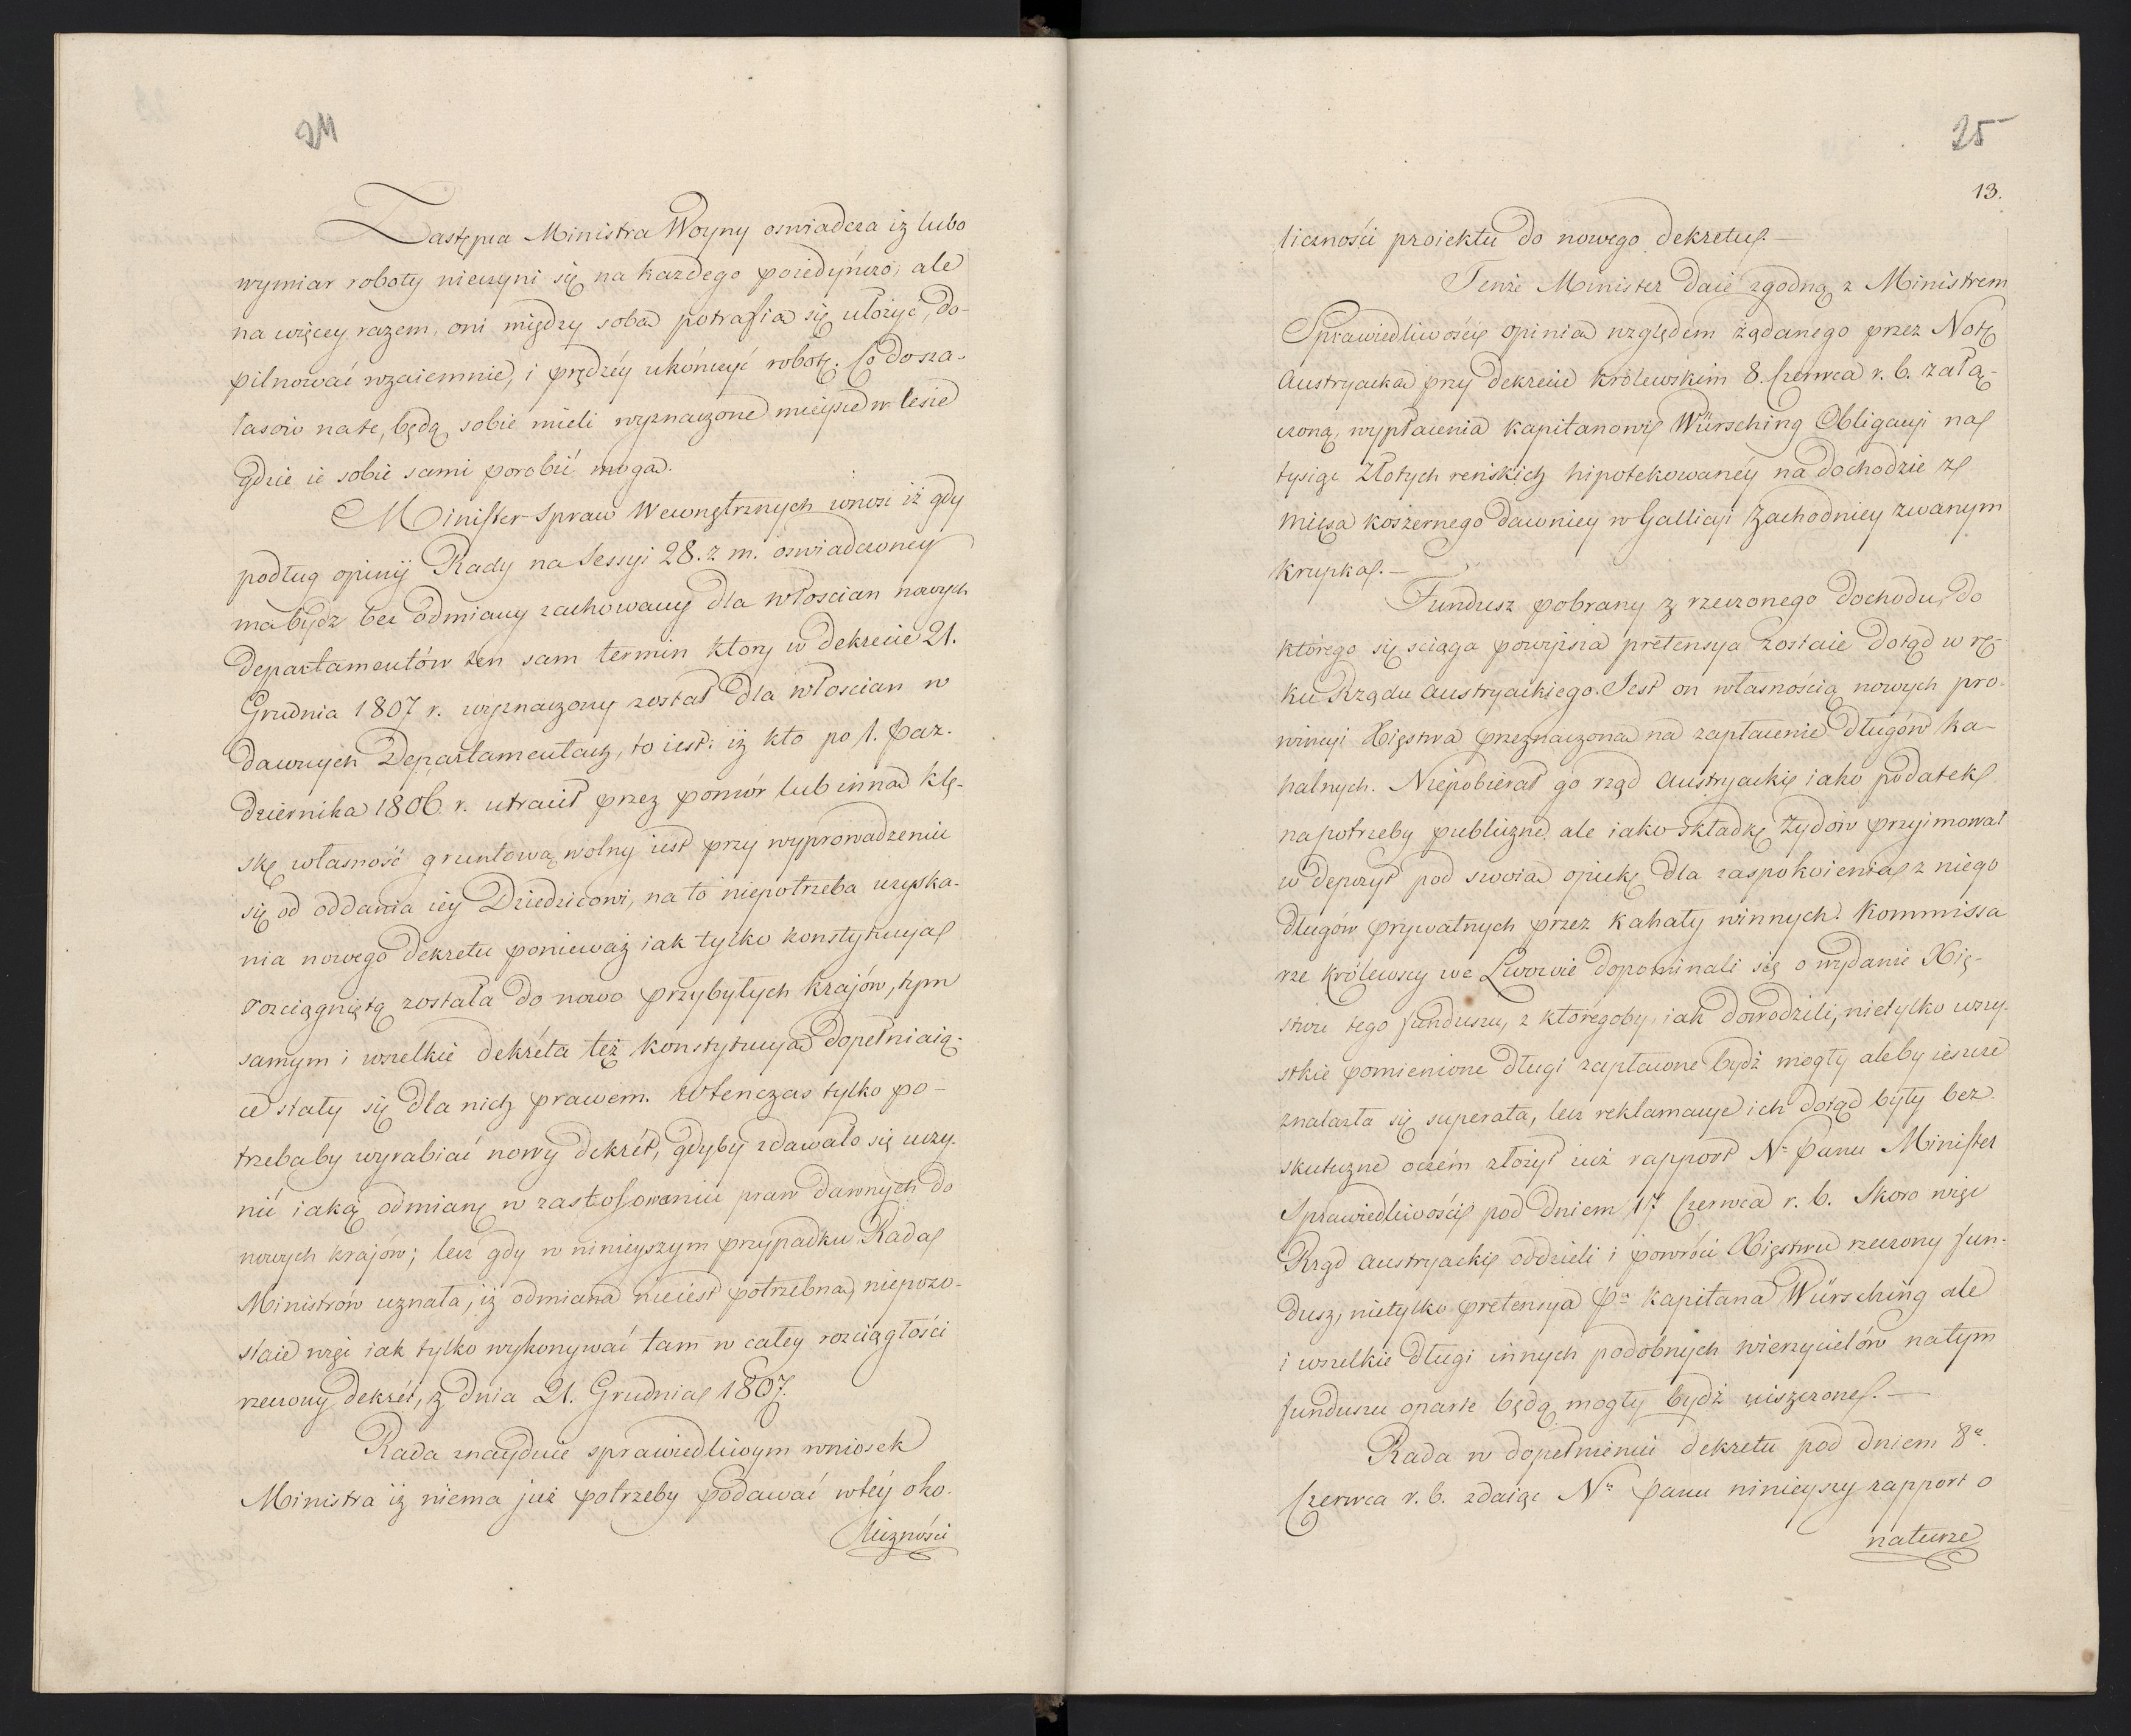 24
Zastępca Ministra Woyny oswiadcza iż lubo
wymiar roboty nieczyni się na każdego poiedyńczo, ale
na więcey razem, oni między sobą potrafią się ułożyć, do-
pilnować wzaiemnie, i prędzéy ukończyć robotę. Co do sza-
łasów na te, będą sobie mieli wyznaczone mieysce w lesie
gdzie ie sobie sami porobić mogą.
Minister Spraw Wewnętrznych wnosi iż gdy
podług opinij Rady na Sessyi 28. z m. oswiadczoney
ma bydz bez odmiany zachowany dla włoscian nowych
Departamentów ten sam termin który w dekrecie 21.
Grudnia 1807 r. wyznaczony został dla włoscian w
dawnych Departamentach, to iest: iż kto po 1. Paz-
dziernika 1806. r. utracił przez pomór lub inną klę-
skę własność gruntową wolny iest przy wyprowadzeniu
się od oddania iey Dziedzicowi, na to niepotrzeba uzyska-
nia nowego dekretu ponieważ iak tylko konstytucya
rozciągniętą została do nowo przybyłych krajów, tym
samym i wszelkie dekréta też konstytucyą dopełniaią-
ce stały się dla nich prawem. Wtenczas tylko po-
trzebaby wyrabiać nowy dekrét, gdyby zdawało się uczy-
nić iaką odmianę w zastosowaniu praw dawnych do
nowych krajów; lecz gdy w ninieyszym przypadku Rada
Ministrów uznała, iż odmiana nieiest potrzebna, niepozo-
staie więc iak tylko wykonywać tam w całey rozciągłości
rzeczony dekrét, z dnia 21. Grudnia 1807.
Rada znayduie sprawiedliwym wniosek
Ministra iż niema już potrzeby podawać w téy oko-
liczności
25
13.
liczności proiektu do nowego dekretu.—
Tenże Minister daie zgodną z Ministrem
Sprawiedliwości opinią względem żądanego przez Notę
Austryacką przy dekrecie królewskim 8. Czerwca r. b. załą-
czoną, wypłacenia kapitanowi Würsching Obligacyi na
tysiąc Złotych reńskich hipotekowanéy na dochodzie z
mięsa koszernego dawniey w Gallicyi Zachodniey zwanym
krupka.—
Fundusz pobrany z rzeczonego dochodu, do
którego się sciąga powyższa pretensya zostaie dotąd w rę-
ku Rządu Austryackiego. Jest on własnością nowych pro-
wincyi Xięstwa przeznaczoną na zapłacenie długów ka-
halnych. Niepobierał go rząd Austryacki iako podatek
na potrzeby publiczne, ale iako składkę Żydów przyimował
w depozyt pod swoią opiekę dla zaspokoienia z niego
długów prywatnych przez kahały winnych. Kommissa
rze królewscy we Lwowie dopominali się o wydanie Xię-
stwu tego funduszu, z któregoby, iak dowodzili, nietylko wszy-
stkie pomienione długi zapłacone bydź mogły aleby ieszcze
znalazła się superata, lecz reklamacye ich dotąd były bez-
skuteczne oczém złożył iuż rapport N. Panu Minister
Sprawiedliwości pod dniem 17 Czerwca r. b. Skoro więc
Rząd Austryacki oddzieli i powróci Xięstwu rzeczony fun-
dusz, nietylko pretensya Pa kapitana Würsching ale
i wszelkie długi innych podóbnych wierzycielów na tym
funduszu oparte będą mogły bydź uiszczone.—
Rada w dopełnieniu dekretu pod dniem 8o
Czerwca r. b. zdaiąc N. Panu ninieyszy rapport o
naturze